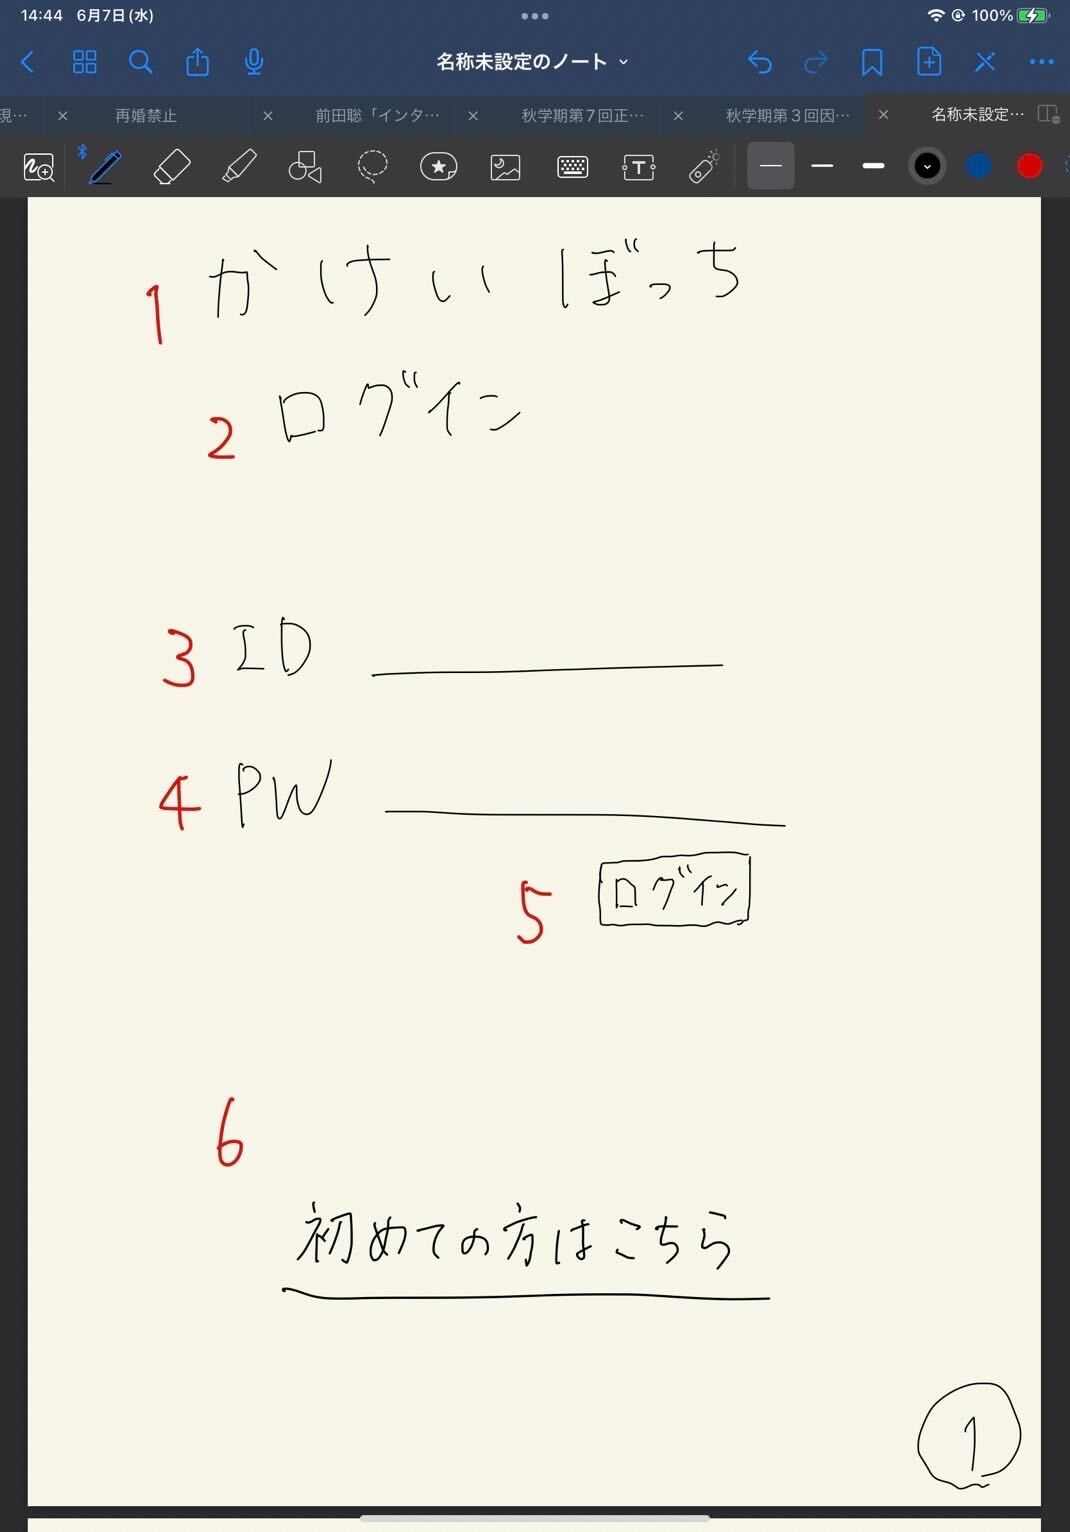 14:44 6月7日(水) 100%
名称未設定のノート
現… 再婚禁止 前田聡「インタ… 秋学期第7回正… 秋学期第3回因… 名称未設定…
T
1 かけいぼっち
2 ログイン
3 ID
4 PW
5 ログイン
6
初めての方はこちら
1